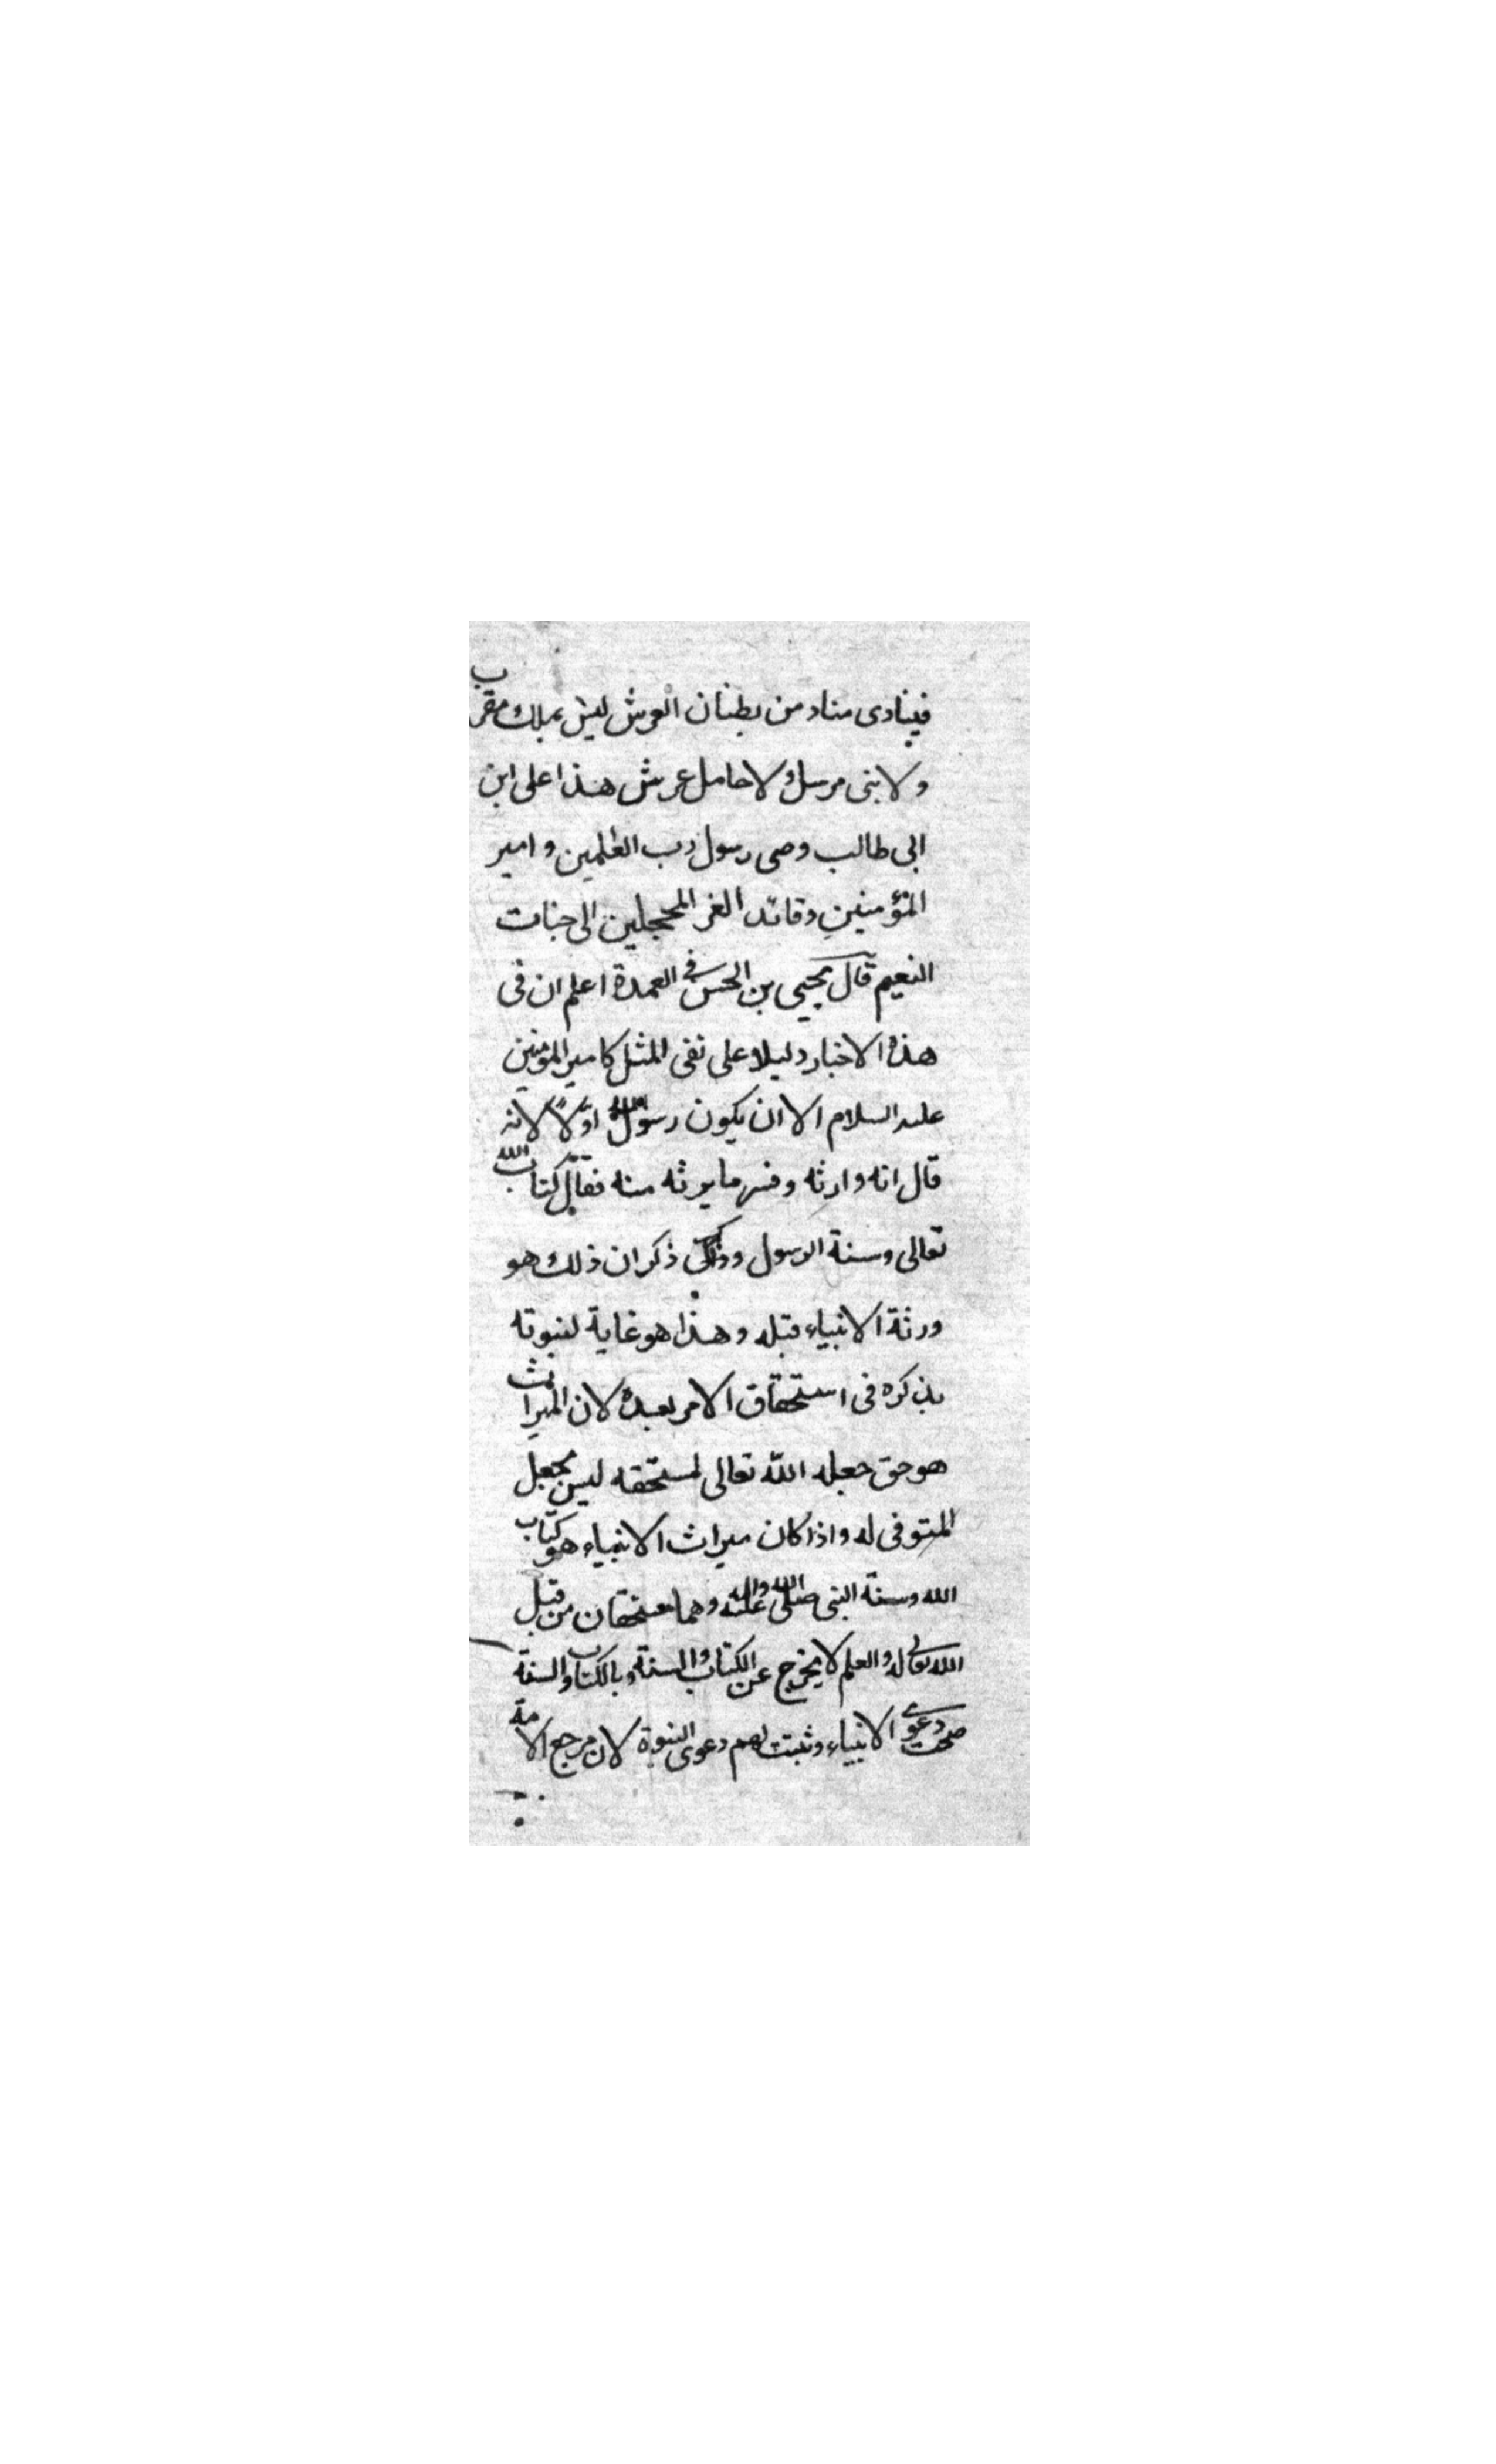 فينادى مناد من بطنان العرش ليس بملك مقرب
ولا نبى مرسل ولا حامل عرش هذا على ابن
ابى طالب وصى رسول رب العلمين وامير
المؤمنين وقائد الغر المحجلين الى جنات
النعيم قال يحيى بن الحسن فى العمدة اعلم ان فى
هذه الاخبار دليلا على نفى المثل كامير المؤمنين
عليه السلام الا ان يكون رسول الله اولا لانه
قال انه وارثه وفسر ما يرثه منه فقال كتاب الله
تعالى وسنة الرسول ذكر ان ذلك هو
ورثة الانبياء قبله وهذا هو غاية لنبوته
بذكره فى استحقاق الامر بعده لان الميراث
هو حق جعله الله تعالى لمستحقه ليس بجعل
المتوفى له واذا كان ميراث الانبياء هو كتاب
الله وسنة النبى صلى الله عليه واله وهما مستحقان من قبل
الله تعالى له والعلم لا يخرج عن الكتاب والسنة وبالكتاب والسنة
صحت دعوى الانبياء وثبتت لهم دعوى النبوة لان مرجع الامة